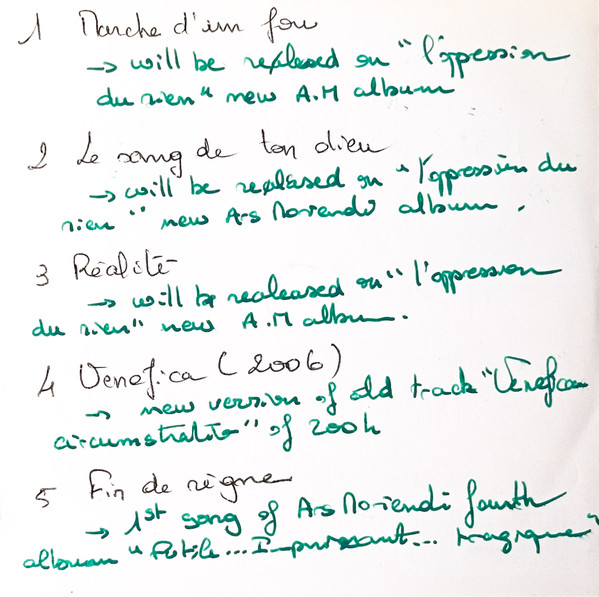 1 Marche d'un fou
→ will be realeased on "l'oppression
du rien" new A.M album
2 Le sang de ton dieu
→ will be realeased on "l'oppression du
rien" new Ars Moriendi album.
3 Réalité
→ will be realeased on "l'oppression
du rien" new A.M album.
4 Venefica (2006)
→ new version of old track "Venefica
circumstratito" of 2004
5 Fin de règne
→ 1st song of Ars Moriendi fourth
album "Futile... Impuissant... tragique"